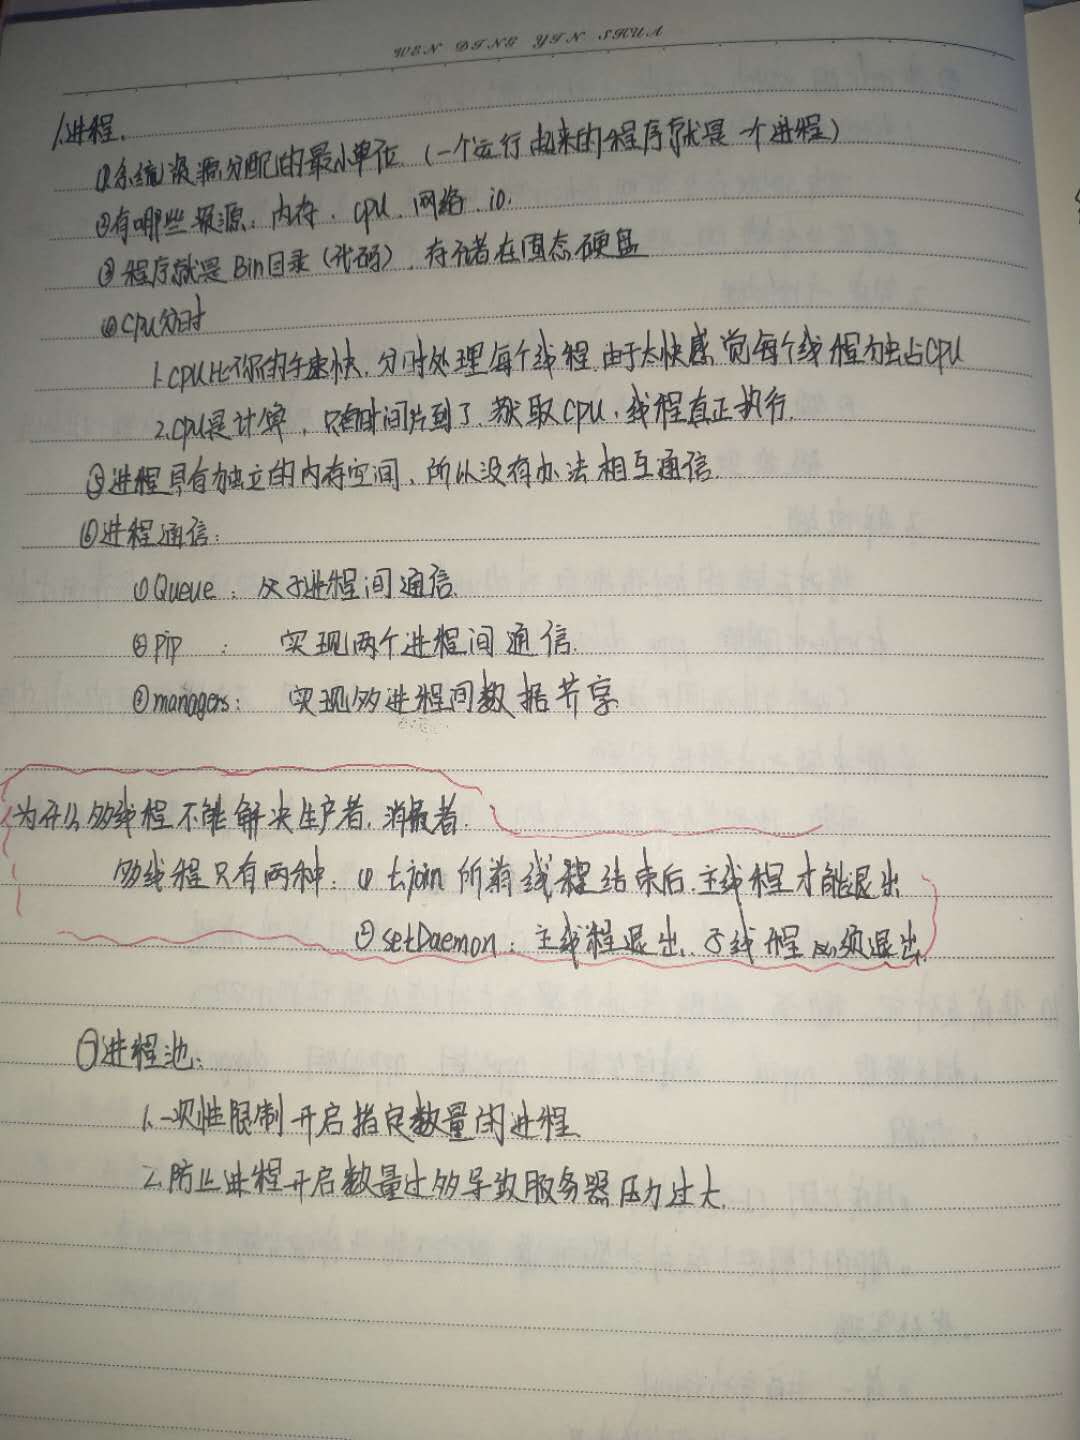 WEN DING YIN SHUA
1.进程.
①系统资源分配的最小单位 (一个运行起来的程序就是一个进程)
②有哪些资源: 内存. cpu. 网络. io.
③程序就是Bin目录(代码), 存储者在固态硬盘
④CPU分时
1.CPU比你的手速快, 分时处理每个线程,由于太快感觉每个线程独占CPU
2.CPU是计算, 只有时间片到了.获取CPU, 线程真正执行.
⑤进程具有独立的内存空间, 所以没有办法相互通信.
⑥进程通信:
①Queue: 父子进程间通信.
②pip : 实现两个进程间通信.
③managers: 实现多进程间数据共享
为什么多线程不能解决生产者.消费者.
多线程只有两种: ① t.join 所有线程结束后.主线程才能退出
② setDaemon: 主线程退出.子线程必须退出.
⑦进程池:
1.一次性限制开启指定数量的进程
2.防止进程开启数量过多导致服务器压力过大.